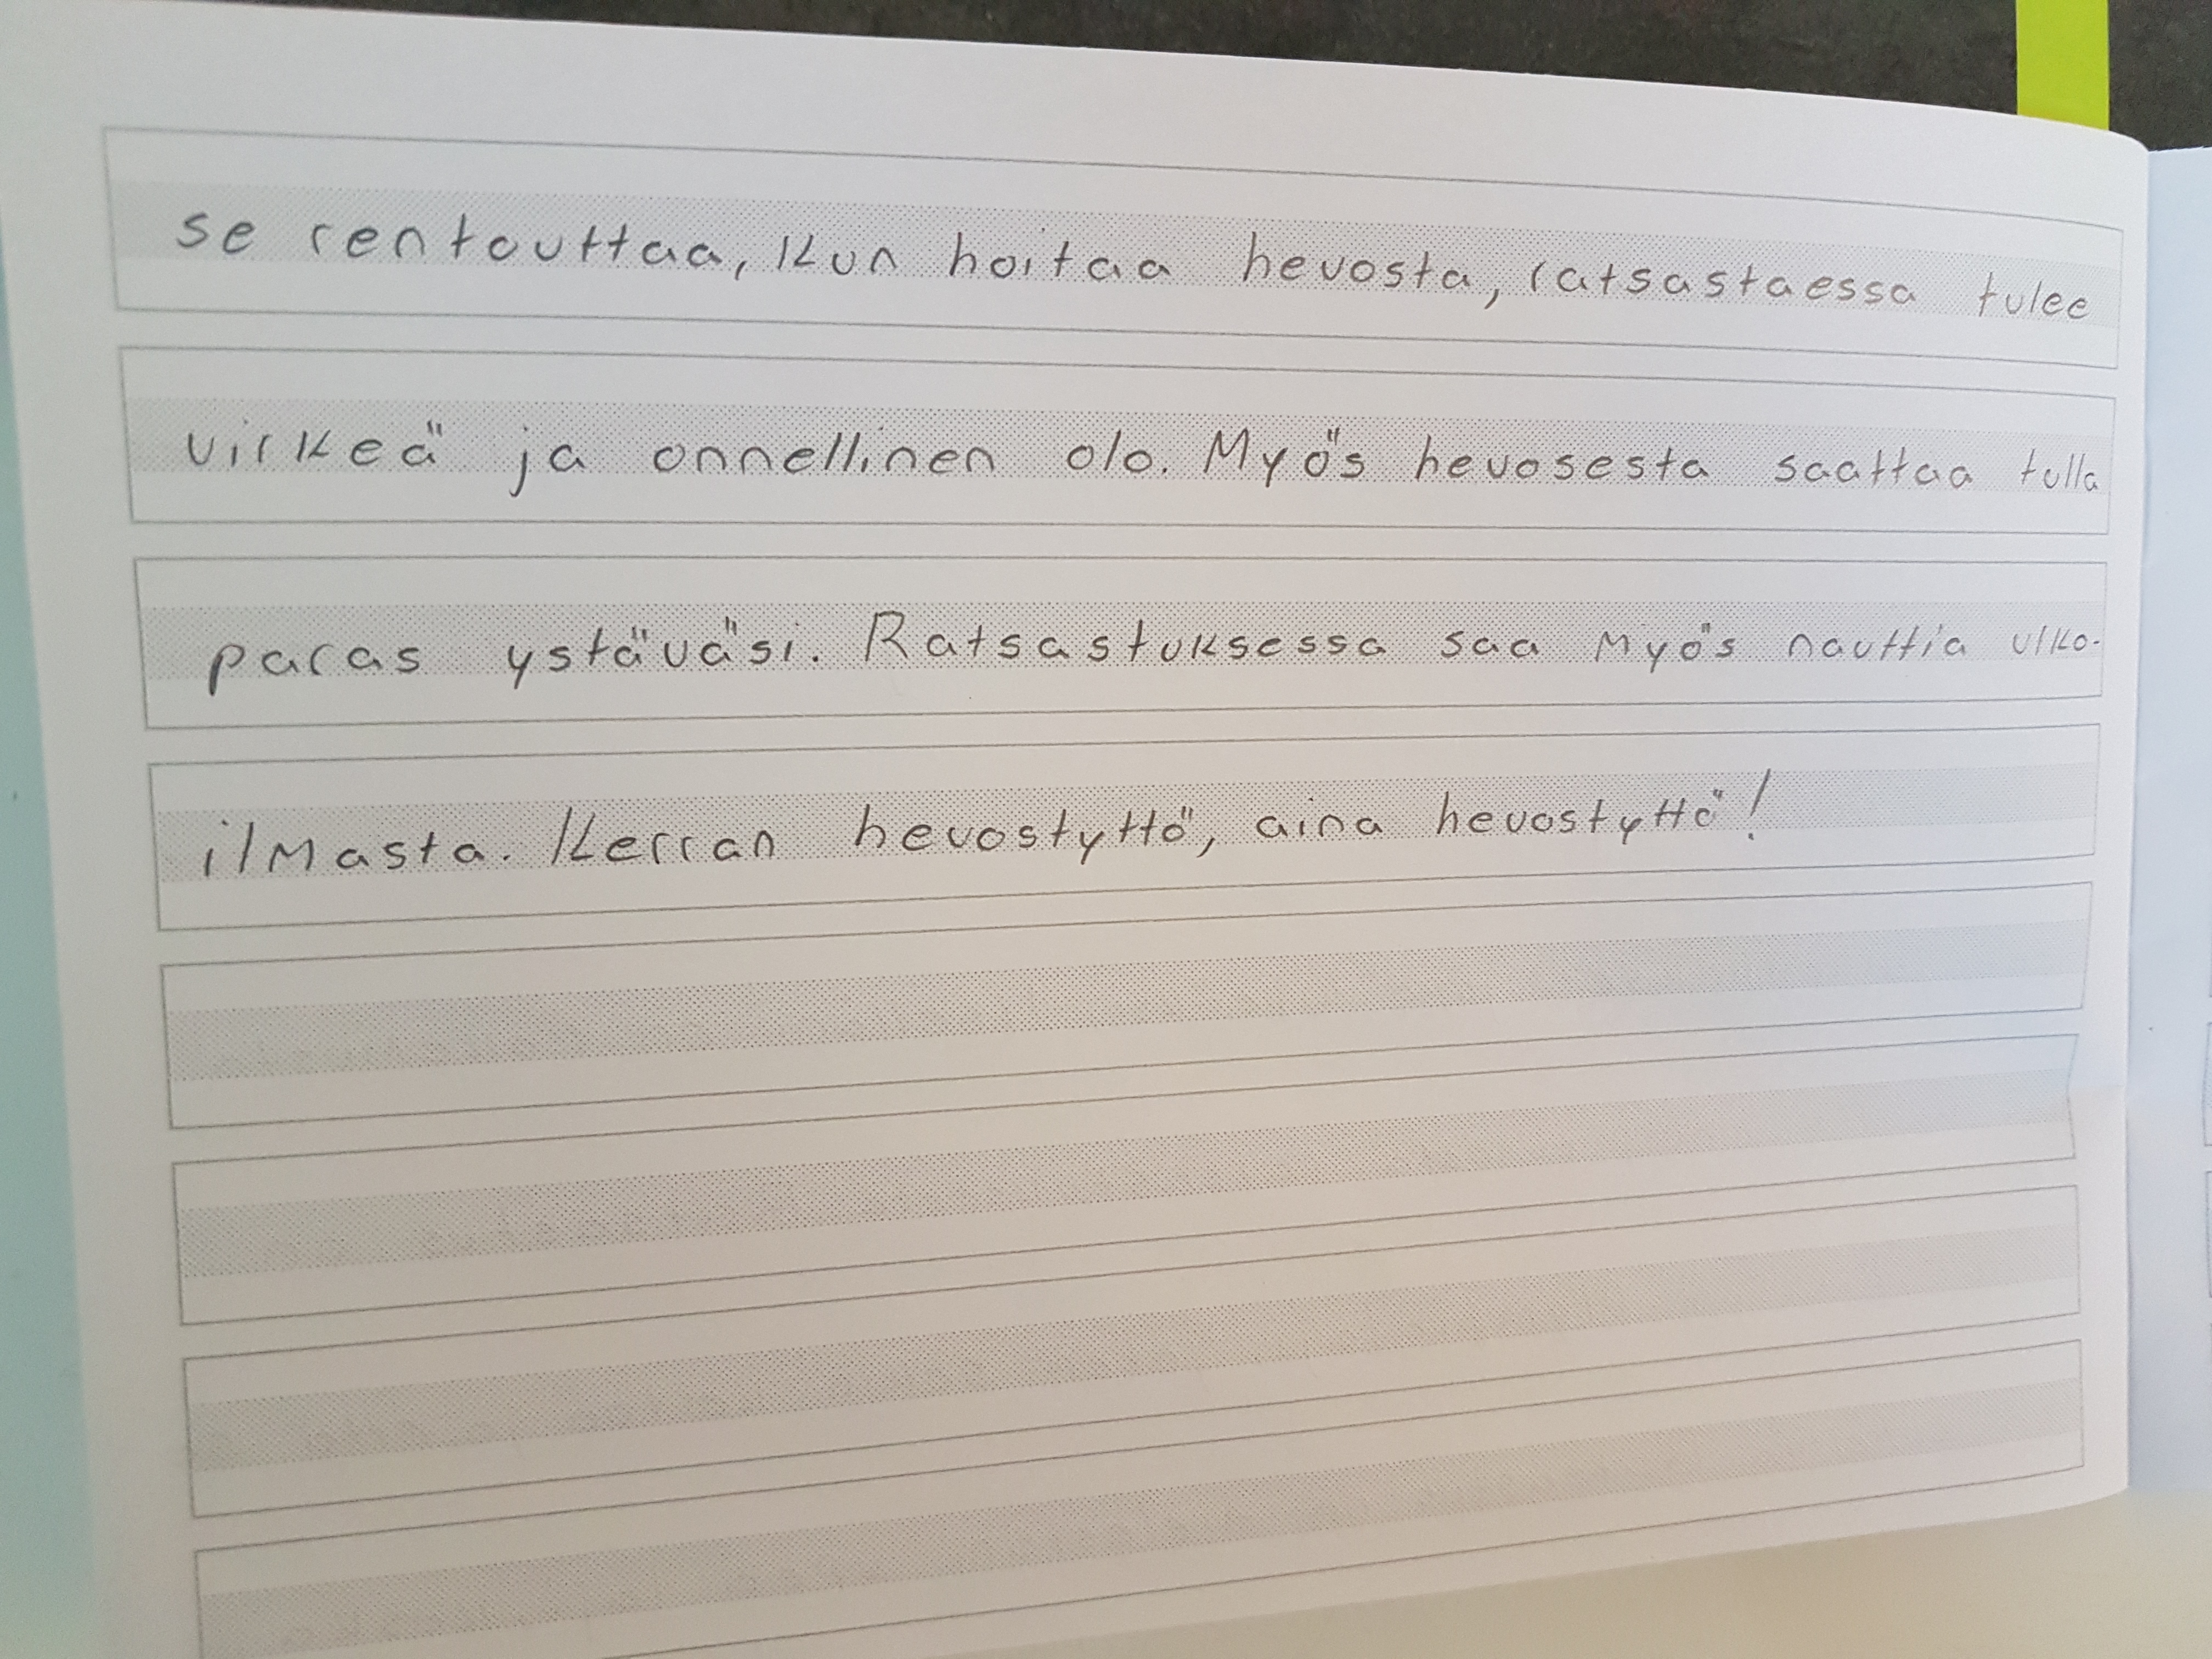 se rentouttaa, kun hoitaa hevosta, ratsastaessa tulee
virkeä ja onnellinen olo. Myös hevosesta saattaa tulla
paras ystäväsi. Ratsastuksessa saa myös nauttia ulko-
ilmasta. Kerran hevostyttö, aina hevostyttö!